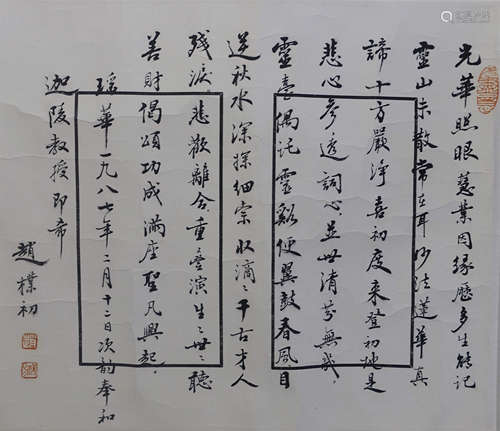 光華照眼慧業因緣歷多生能記
靈山未散常在耳妙法蓮華真
諦十方嚴淨喜初度來登初地是
悲心參透詞心並世清芬無幾
靈臺偶託靈谿便翼鼓春風目
送秋水深探細索收滴滴千古才人
殘淚悲歡離合重疊演生生世世聽
善財偈頌功成滿座聖凡興起
瑤華一九八七年二月十二日次韵奉和
迦陵教授即希
趙樸初